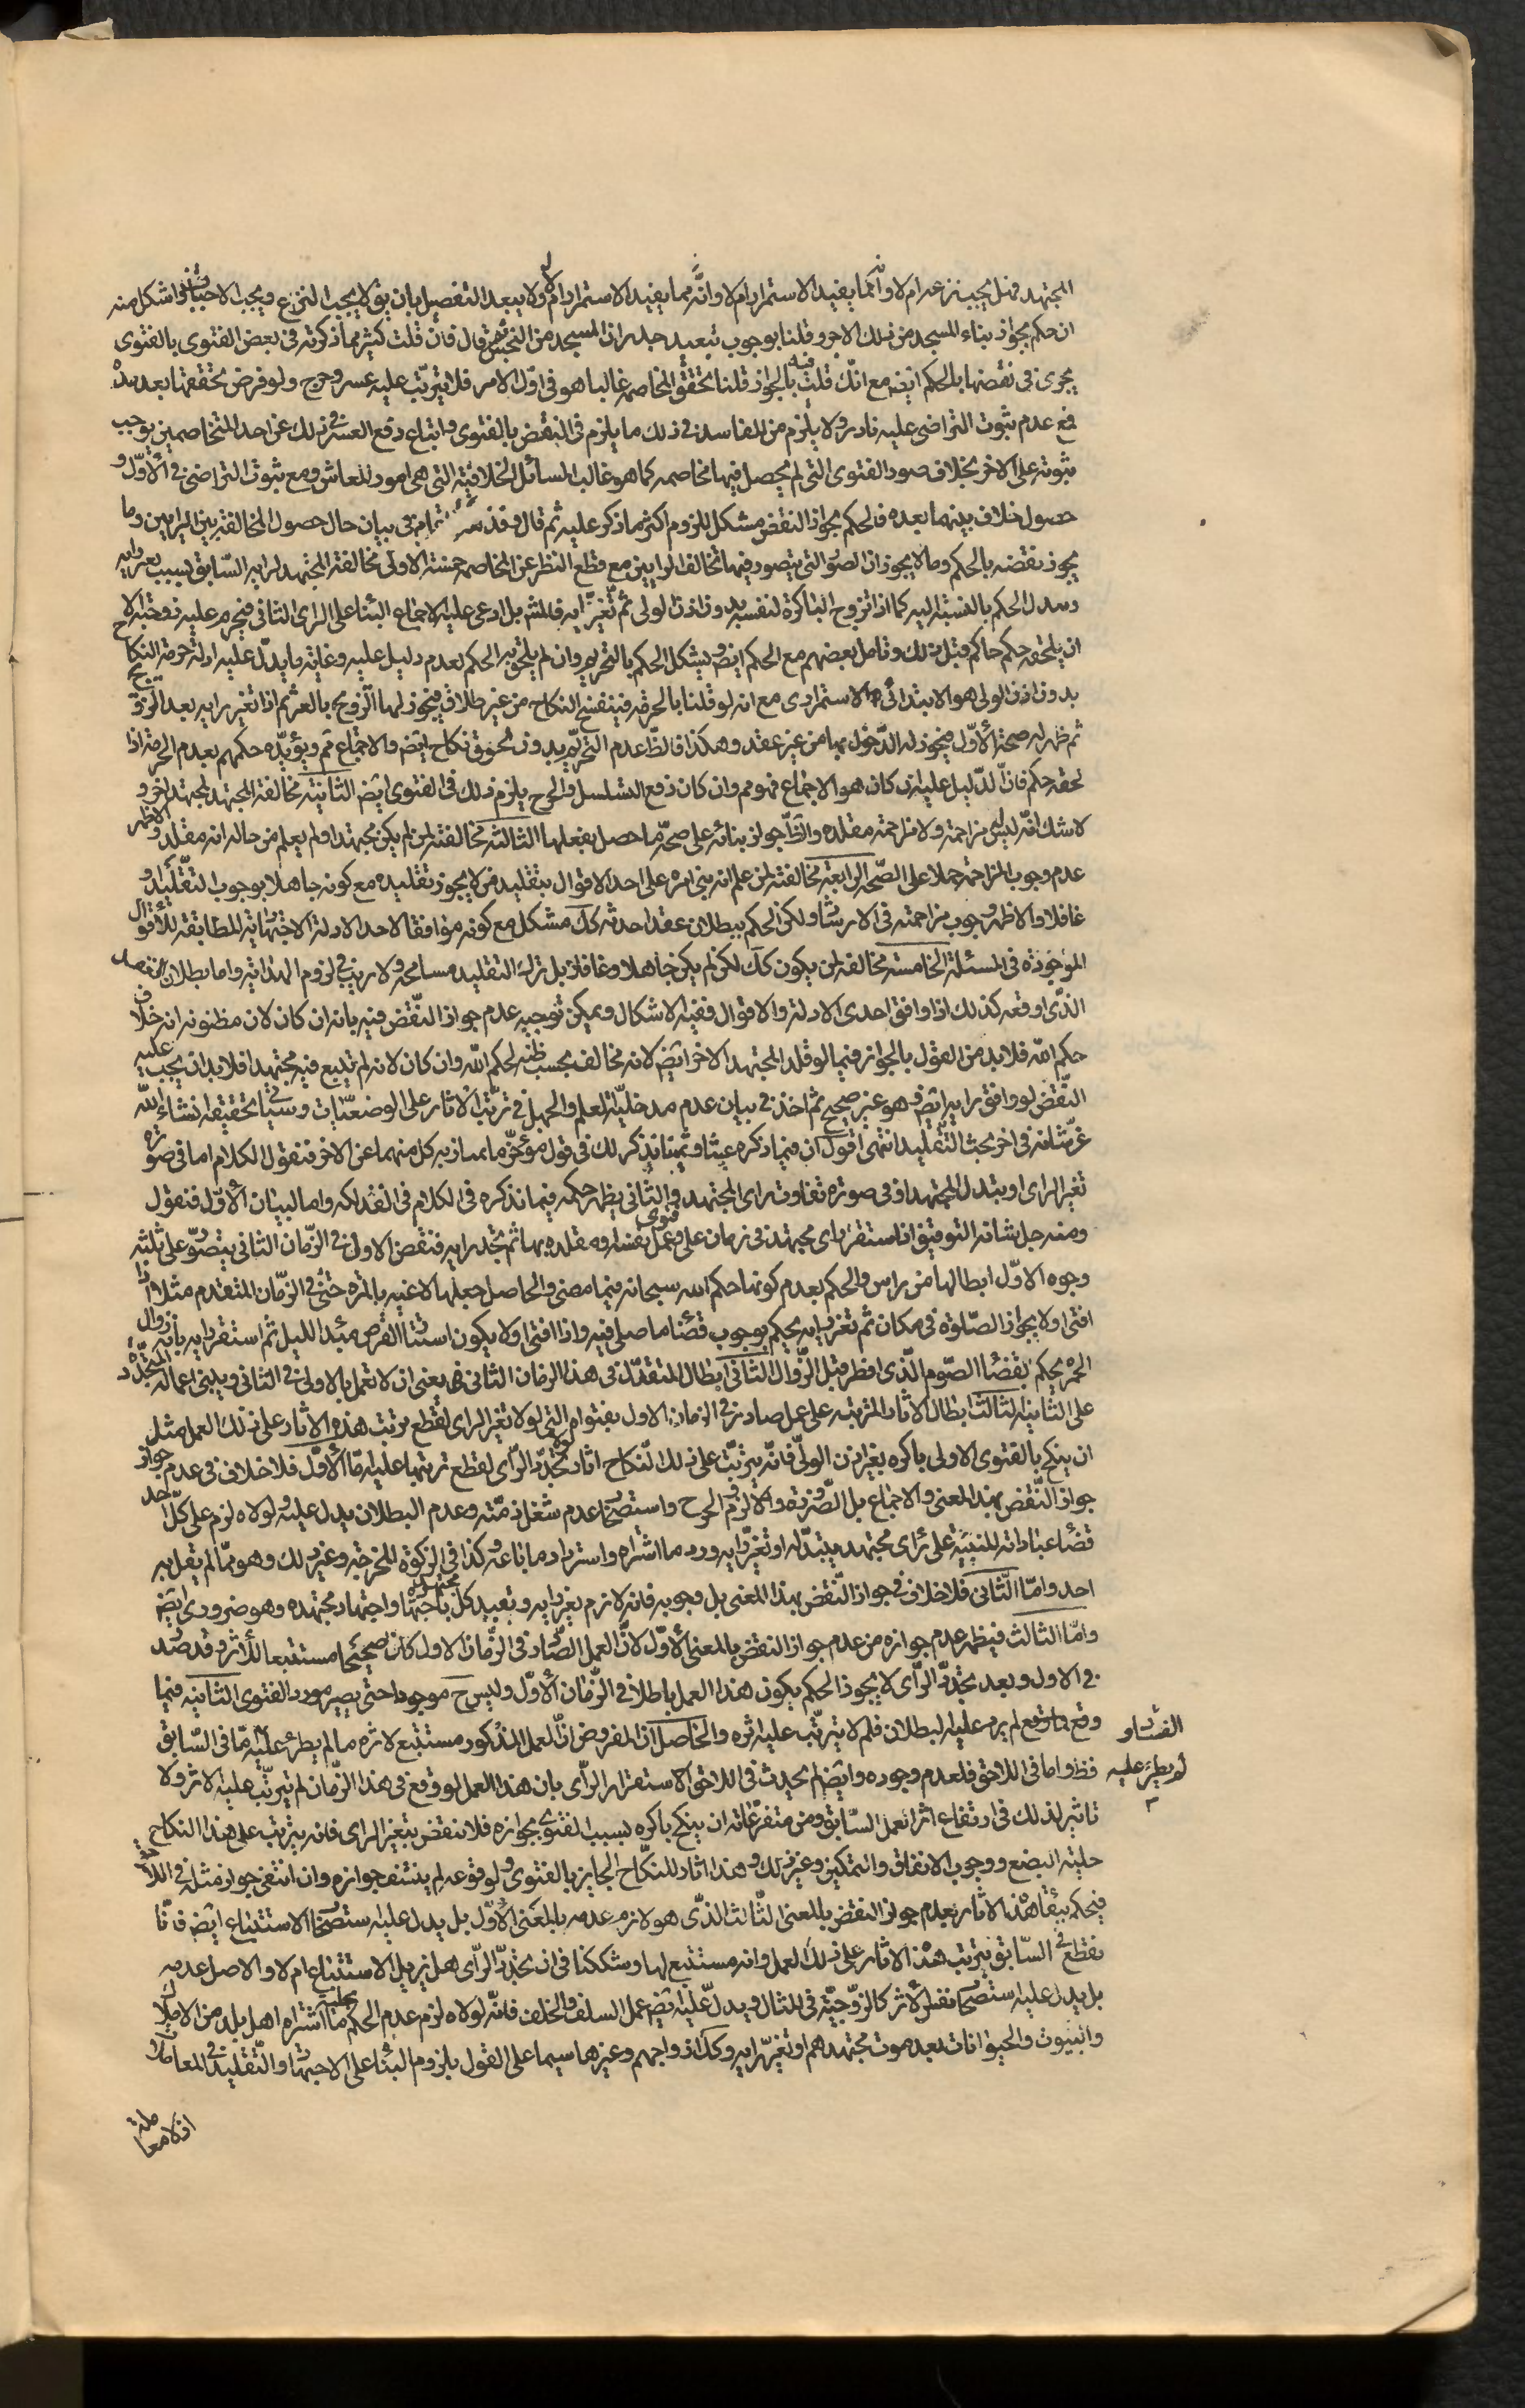 المجتهد فهل يجب نزعه ام لا وانما يفيد الاستمرار ام لا وانه مما يفيد الاستمرار ام لا ولا يبعد التفصيل بان يق لا يجب النزع ويجب الاجتناب واشكل منه
ان حكم بجواز بناء المسجد من ذلك الاجر وقلنا بوجوب تبعيد جدران المسجد من النجس ثم قال فان قلت كثير مما ذكرته في بعض الفتوى بالفتوى
يجرى في نقضها بالحكم ايض مع انك قلت فيه بالجواز قلنا تحقق المخاصمه غالبا هو في اول الامر فلا يترتب عليه عسر وحرج ولو فرض تحققها بعد مدة
فمع عدم ثبوت التراضى عليه نادر ولا يلزم من المفاسد في ذلك ما يلزم في النقض بالفتوى واتباع دفع العسر في ذلك عن احد المتخاصمين يوجب
ثبوته على الاخر بخلاف صور الفتوى التى لم يحصل فيها مخاصمه كما هو غالب المسائل الخلافية التى هى امور للمعاش ومع ثبوت التراضى في الاول و
حصول خلاف بينهما بعده فالحكم بجواز النقض مشكل للزوم اكثر ما ذكر عليه ثم قال في بيان حال حصول المخالفة بين الرايين وما
يجوز نقضه بالحكم وما لا يجوز ان الصور التى يتصور فيها تخالف الرايين مع قطع النظر عن المخاصمه خمسة الاولى مخالفة المجتهد لرايه السابق بسبب تغير رايه
وتبدل الحكم بالنسبة اليه كما اذا تزوج الباكرة لنفسه بدون اذن الولى ثم تغير رايه فالمش بل ادعى عليه الاجماع البناء على الراى الثانى فيحرم عليه زوجته الا
ان يلحقه حكم حاكم قبل ذلك وتامل بعضهم مع الحكم ايض ويشكل الحكم بالتحريم وان لم يلحق به الحكم لعدم دليل عليه وغاية ما يدل عليه ادلة حرمة النكاح
بدون اذن الولى هو الابتدائى لا الاستمرارى مع انه لو قلنا بالحرمة فينفسخ النكاح من غير طلاق فيجوز لها التزويج بالغير ثم اذا تغير رايه بعد التزويج
ثم ظهر له صحة الاول فيجوز له الدخول بها من غير عقد وهكذا فالظ عدم التحريم بدون تحقق نكاح ايض والاجماع مم ويؤيده حكمهم بعدم الحرمة اذا
لحقه حكم فان الدليل عليه ان كان هو الاجماع فهو مم وان كان دفع التسلسل والحرج يلزم ذلك في الفتوى ايض الثانية مخالفة المجتهد لمجتهد اخر و
لا شك انه ليس له مزاحمته ولا مزاحمة مقلده والظ جواز بنائه على صحة ما حصل بفعلها الثالثة مخالفته لمن لم يكن مجتهدا ولم يعلم من حاله انه مقلد والاظهر
عدم وجوب المزاحمة حملا على الصحة الرابعة مخالفته لمن علم انه بنى امره على احد الاقوال بتقليد من لا يجوز تقليده مع كونه جاهلا بوجوب التقليد او
غافلا والاظهر وجوب مزاحمته في الارشاد ولكن الحكم ببطلان عقد احدثه كك مشكل مع كونه موافقا لاحد الادلة الاجتهادية المطابقة للاقوال
الموجودة في المسئلة الخامسة مخالفته لمن يكون كك لكن لم يكن جاهلا وغافلا بل ترك التقليد مسامحة ولا ريب في لزوم الهداية واما بطلان
الذى اوقعه كذلك اذا وافق احدى الادلة والاقوال ففيه الاشكال ويمكن توجيه عدم جواز النقض فيه بانه ان كان لان مظنونه انه خلاف
حكم الله فلا بد من القول بالجواز فيما لو قلد المجتهد الاخر ايض لانه مخالف بحسب ظنه لحكم الله وان كان لانه لم يتبع فيه مجتهدا فلا بد ان يجب عليه
النقض لو وافق رايه ايض فهو غير صحيح ثم اخذ في بيان عدم مدخلية العلم والجهل في ترتب الاثار على الوضعيات وسياتى تحقيقه انشاء الله
عز شانه في اخر بحث التقليد انتهى اقول ان فيما ذكره عيثا وثمينا نذكر لك في قول مؤخر ما يمتاز به كل منهما عن الاخر فنقول الكلام اما في صورة
تغير الراى او تبدل المجتهد او في صورة تفاوت راى المجتهد والثانى يظهر حكمه فيما نذكره في الكلام في الفذلكه واما لبيان الاول فنقول
ومنه جل شانه التوفيق اذا استقر راى مجتهد في زمان على فتوى وعمل بنفسه او مقلده بها ثم تجدد رايه فنقض الاول في الزمان الثانى يتصور على ثلثة
وجوه الاول ابطالها من راس والحكم بعدم كونها حكم الله سبحانه فيما مضى والحاصل جعلها لاغيه بالمرة حتى في الزمان المتقدم مثلا اذا
افتى اولا بجواز الصلوة في مكان ثم تغير رايه يحكم بوجوب قضاء ما صلى فيه واذا افتى اولا يكون استتار القرص مبدا الليل ثم استقر رايه بانه زوال
الحمرة يحكم بقضاء الصوم الذى افطر قبل الزوال الثانى ابطال المتقدم في هذا الزمان الثانى بمعنى ان لا تعمل بالاولى في الثانى ويبنى اعماله المتجددة
على الثانية الثالث ابطال الاثار المترتبه على عمل صادر في الزمان الاول بفتواه التى لولا تغير الراى لقطع بترتب هذه الاثار على ذلك العمل مثل
ان ينكح بالفتوى الاولى باكره بغير اذن الولى فانه يترتب على ذلك النكاح اثار لولا تجدد الراى لقطع بترتبها عليه اما الاول فلا خلاف في عدم جواز
جواز النقض بهذا المعنى والاجماع بل الضرورة والا لزم الحرج واستصحاب عدم شغل ذمته وعدم البطلان يدل عليه ولولاه لزم على كل احد
قضاء عباداته المبنية على راى مجتهد بتبدله او تغير رايه ورد ما اشتراه واسترداد ما باعه وكذا في الزكوة المخرجة وغير ذلك وهو مما لم يقل به
احد واما الثانى فلا خلاف في جواز النقض بهذا المعنى بل وجوبه فانه لازم تغير رايه وتعبد كل مجتهد باجتهاده واجتهاد مجتهده وهو ضرورى ايض
واما الثالث فيظهر عدم جوازه من عدم جواز النقض بالمعنى الاول لان العمل الصادر في الزمان الاول كان صحيحا مستتبعا للاثر وقد صد
في الاول وبعد تجدد الراى لا يجوز الحكم بكون هذا العمل باطلا في الزمان الاول وليس ح موجودا حتى يصير مورد الفتوى الثانيه فيما
وقع ما وقع لم يرد عليه البطلان فلم لا يترتب عليه اثره والحاصل ان المفروض ان العمل المذكور مستتبع لاثره ما لم يطرء عليه الفساد ولم يطرء عليه اما في السابق
فظ واما في اللاحق فلعدم وجوده وايض لم يحدث في اللاحق الا استقرار الراى بان هذا العمل لو وقع في هذا الزمان لم يترتب عليه الاثر ولا
تاثير لذلك في ارتفاع اثر العمل السابق ومن متفرعاته ان ينكح باكره بسبب الفتوى بجوازه فلا نقض بتغير الراى فانه يترتب على هذا النكاح
حلية البضع ووجوب الانفاق والتمكين وغير ذلك وهذا اثار للنكاح الجايز بالفتوى ولوقوعه لم ينتف جوازه وان انتفى جواز مثله في اللاحق
فيحكم ببقاء هذه الاثار بعدم جواز النقض بالمعنى الثالث الذى هو لازم عدمه بالمعنى الاول بل يدل عليه استصحاب الاستتباع ايض فانا
نقطع في السابق بترتب هذه الاثار على ذلك العمل وانه مستتبع لها وشككنا في ان تجدد الراى هل يزيل الاستتباع ام لا والاصل عدمه
بل يدل عليه استصحاب نفس الاثر كالزوجية في المثال ويدل عليه ايض عمل السلف والخلف فانه لولاه لزم عدم الحكم بحلية ما اشتراه اهل بلد من الاملاك
والبيوت والحيوانات بعد موت مجتهدهم او تغير رايه وكذا ازواجهم وغيرها سيما على القول بلزوم البناء على الاجتهاد والتقليد في المعاملات
اذ لا معاملة